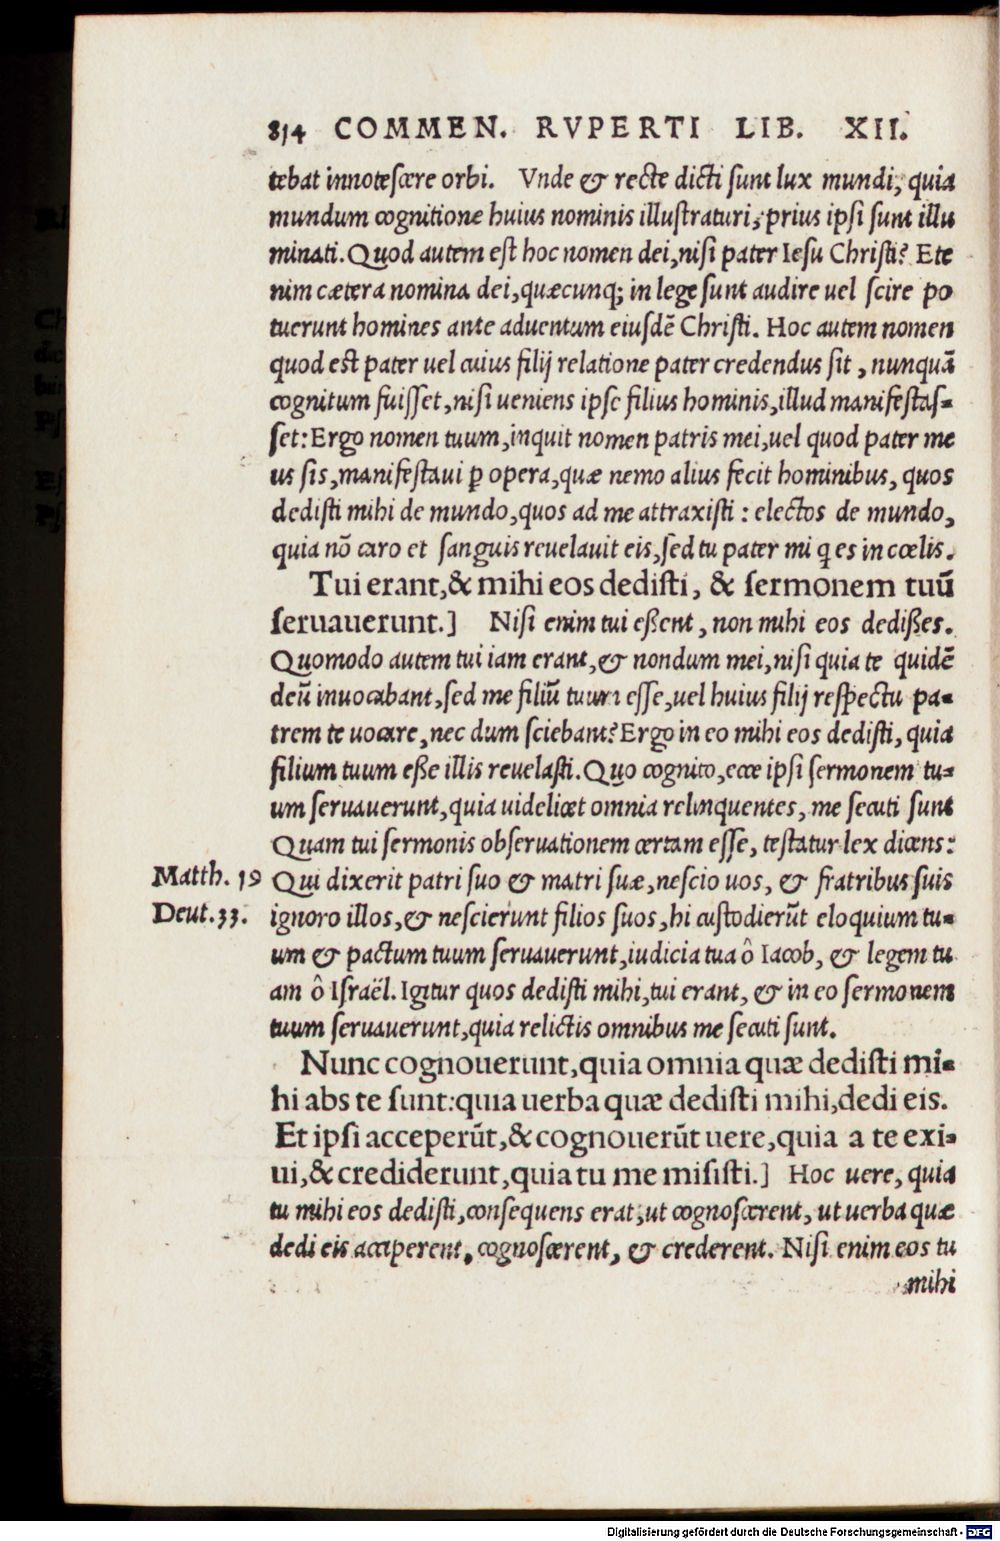 814 COMMEN. RVPERTI LIB. XII.
tebat innotescere orbi. Vnde & recte dicti sunt lux mundi, quia
mundum cognitione huius nominis illustraturi, prius ipsi sunt illu
minati. Quod autem est hoc nomen dei, nisi pater Iesu Christi? Ete
nim cætera nomina dei, quæcunq; in lege sunt audire uel scire po
tuerunt homines ante aduentum eiusdē Christi. Hoc autem nomen
quod est pater uel cuius filij relatione pater credendus sit, nunquā
cognitum fuisset, nisi ueniens ipse filius hominis, illud manifestas-
set: Ergo nomen tuum, inquit nomen patris mei, uel quod pater me
us sis, manifestaui ꝑ opera, quæ nemo alius fecit hominibus, quos
dedisti mihi de mundo, quos ad me attraxisti: electos de mundo,
quia nō caro et sanguis reuelauit eis, sed tu pater mi q̃ es in cœlis.
Tui erant, & mihi eos dedisti, & sermonem tuū
seruauerunt.] Nisi enim tui eßent, non mihi eos dedißes.
Quomodo autem tui iam erant, & nondum mei, nisi quia te quidē
deū inuocabant, sed me filiū tuum esse, uel huius filij respectu pa-
trem te uocare, nec dum sciebant? Ergo in eo mihi eos dedisti, quia
filium tuum eße illis reuelasti. Quo cognito, ecce ipsi sermonem tu-
um seruauerunt, quia uidelicet omnia relinquentes, me secuti sunt
Quam tui sermonis obseruationem certam esse, testatur lex dicens:
Matth. 19 Qui dixerit patri suo & matri suæ, nescio uos, & fratribus suis
Deut. 33. ignoro illos, & nescierunt filios suos, hi custodierūt eloquium tu-
um & pactum tuum seruauerunt, iudicia tua ô Iacob, & legem tu
am ô Israël. Igitur quos dedisti mihi, tui erant, & in eo sermonem
tuum seruauerunt, quia relictis omnibus me secuti sunt.
Nunc cognouerunt, quia omnia quæ dedisti mi-
hi abs te sunt: quia uerba quæ dedisti mihi, dedi eis.
Et ipsi acceperūt, & cognouerūt uere, quia a te exi-
ui, & crediderunt, quia tu me misisti.] Hoc uere, quia
tu mihi eos dedisti, consequens erat, ut cognoscerent, ut uerba quæ
dedi eis acciperent, cognoscerent, & crederent. Nisi enim eos tu
mihi
Digitalisierung gefördert durch die Deutsche Forschungsgemeinschaft - DFG